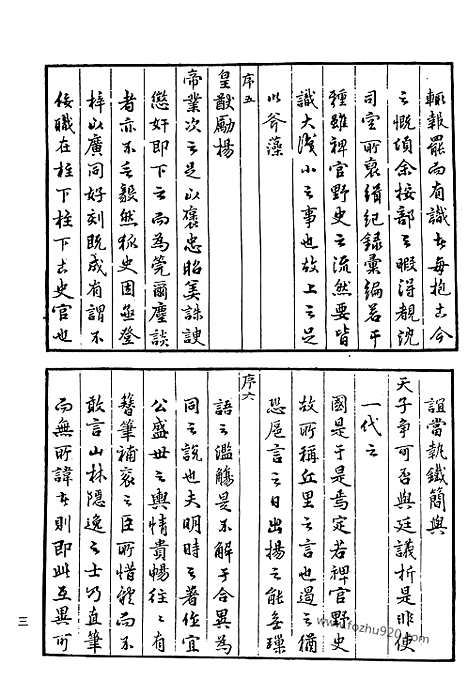 輒報罷而有識者每抱古今
之慨頃余按部之暇得覩沈
司空所裒緝紀録彙編若干
種雖稗官野史之流然要皆
識大識小之事也故上之足
以斧藻
序五
皇猷勵揚
帝業次之足以褒忠昭美誅諛
懲奸即下之而為莞爾麈談
者亦不乏毅然狐史因亟登
梓以廣同好刻既成有謂不
佞職在柱下柱下古史官也
誼當執鐵簡與
天子爭可否與廷議析是非使
一代之
國是于是焉定若稗官野史
故所稱丘里之言也過之猶
恐巵言之日出揚之能無璅
序六
語之濫觴是不解于合異為
同之說也夫明時之著作宜
公盛世之輿情貴暢往往有
簪筆補衮之臣所惜體而不
敢言山林隱逸之士乃直筆
而無所諱者則即此互異所
三
www.fozhu920.com